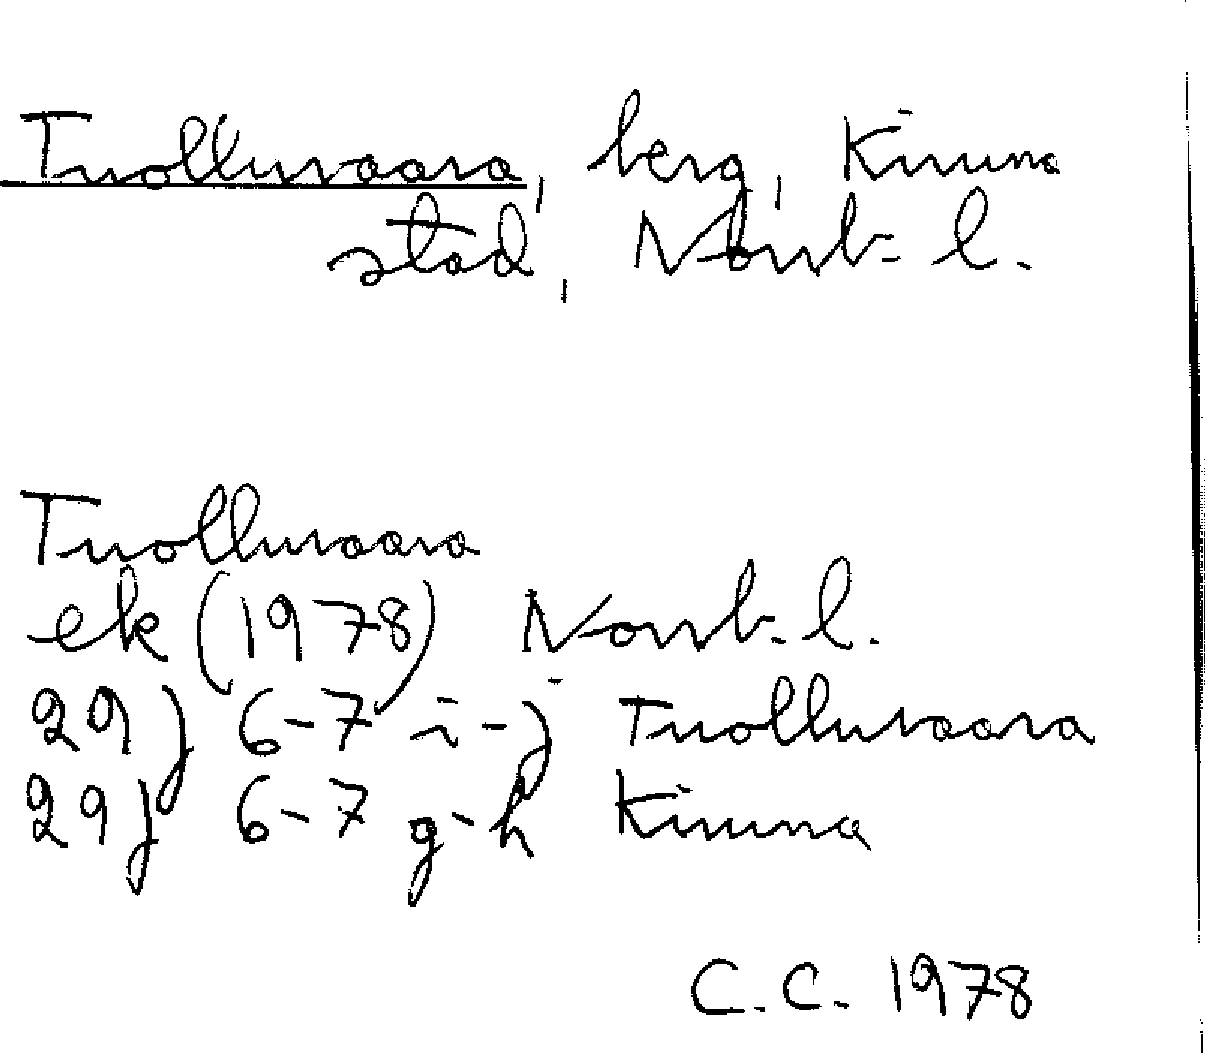 Tuolluvaara, berg, Kiruna
stad, Norrb. l.
Tuolluvaara
ek (1978) Norrb. l.
29 J 6-7 i-j Tuolluvaara
29 J 6-7 g-h Kiruna
C.C. 1978